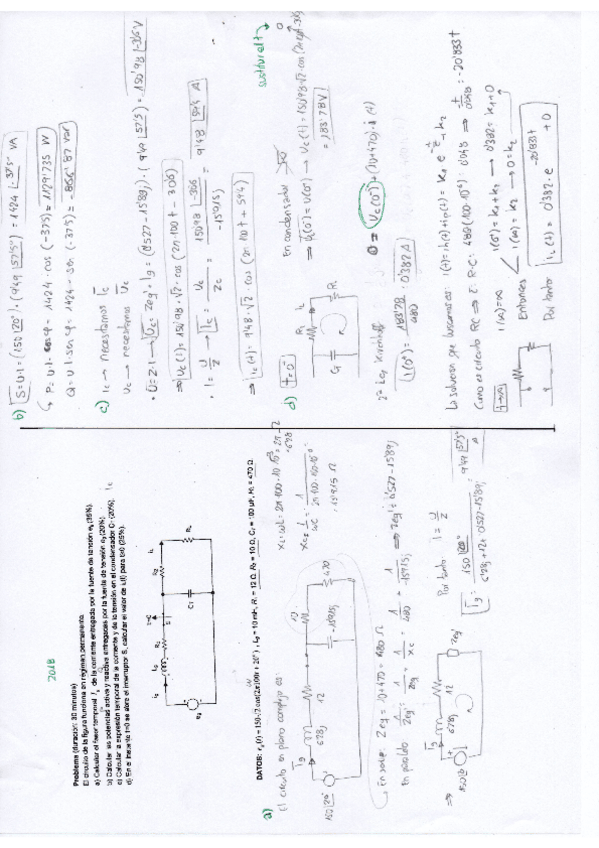 2018
Problema (duración: 30 minutos)
El circuito de la figura funciona en régimen permanente.
a) Calcular el fasor temporal Īg de la corriente entregada por la fuente de tensión eg (35%).
b) Calcular las potencias activa y reactiva entregadas por la fuente de tensión eg (20%).
c) Calcular la expresión temporal de la corriente y de la tensión en el condensador C1 (20%).
d) En el instante t=0 se abre el interruptor S, calcular el valor de iL(t) para t>0 (25%).
DATOS: eg(t) = 150·√2 cos(2π100t + 20°), Lg = 10 mH, R1 = 12 Ω, R2 = 10 Ω, C1 = 100 µF, RL = 470 Ω.
a)
El circuito en plano complejo es:
XL = ωL = 2π·100·10·10⁻³ = 2π Ω
= 6'28
Xc = 1/ωC = 1/2π·100·100·10⁻⁶
= 15'915 Ω
Īg 6'28j 12 10
150|20° -15'915j 470
En serie: Zeq = 10 + 470 = 480 Ω
En paralelo 1/Zeq = 1/Z + 1/Xc = 1/480 + 1/-15'915j ⇒ Zeq = 0'527 - 15'89j
⇒
Īg 6'28j 12
150|20° Zeq
Por tanto I = U/Z
Īg = 150|20° / 6'28j + 12 + 0'527 - 15'89j = 9'49|57'5° A
b) S = U·I = (150|20°)·(9'49|57'5°) = 1424|-37'5° VA
P = U·I·cos φ = 1424·cos(-37'5) = 1129'735 W
Q = U·I·sen φ = 1424·sen(-37'5) = -866'87 VAr
c) Ic → necesitamos Īc
Uc → necesitamos Ūc
· U = Z·I → Ūc = Zeq·Ig = (0'527 - 15'89j)·(9'49|57'5) = 150'98|-30'6 V
⇒ Uc(t) = 150'98·√2·cos(2π·100t - 30'6)
· I = U/Z → Īc = Uc/Zc = 150'98|-30'6 / -15'915j = 9'48|59'4 A
⇒ ic(t) = 9'48·√2·cos(2π·100t + 59'4)
sustituir t
d) t = 0⁻
En condensador
⇒ Uc(0⁻) = U(0⁺) → Uc(t) = 150'98·√2·cos(2π·100t - 30'6)
= 183'78 V
2ª Ley Kirchhoff
0 = Uc(0⁺) + (10+470)·i(t)
i(0⁺) = 183'78/480 = 0'382 A
La solución que buscamos es: i(t) = ih(t) + ip(t) = K1 e^(-t/τ) + K2
Como es circuito RC ⇒ τ = R·C = 480(100·10⁻⁶) = 0'048 ⇒ t/0'048 = -20'833t
t → ∞
i(∞) = 0
Entonces i(0⁺) = K1 + K2 → 0'382 = K1 + 0
i(∞) = K2 → 0 = K2
Por tanto iL(t) = 0'382·e^(-20'833t) + 0